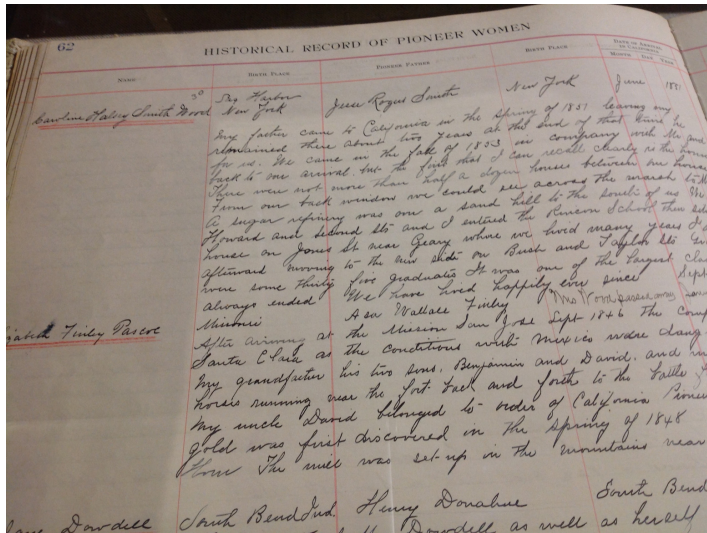 62
HISTORICAL RECORD OF PIONEER WOMEN
NAME BIRTH PLACE PIONEER FATHER BIRTH PLACE DATE OF ARRIVAL
MONTH DAY YEAR
Sag Harbor
Caroline Halsey Smith Wood New York Jesse Rogers Smith New York June 1851
My father came to California in the Spring of 1851 leaving my
remained there about two years at the end of that time he
for us. We came in the fall of 1853 in company with Mr. and
back to our arrival, but the first that I can recall clearly is the house
There were not more than half a dozen houses between our house
From our back window we could see across the marsh to
A sugar refinery was on a sand hill to the south of us We
Howard and Second Sts and I entered the Rincon School then
house on Jones St near Geary where we lived many years I
afterward moving to the new side on Bush and Taylor Sts
were some thirty five graduates It was one of the largest
always ended We have lived happily ever since Sept
Missouri Asa Wallace Finley Mrs Wood passed away
Elizabeth Finley Pascoe
After arriving at the Mission San Jose Sept 1846 The
Santa Clara as the conditions with Mexico were
My grandfather his two sons, Benjamin and David, and
horses running near the fort back and forth to the
My uncle David belonged to order of California
gold was first discovered in the spring of 1848
The mill was set up in the mountains near
Dowdell South Bend Ind. Henry Donahue South Bend
Dowdell as well as herself